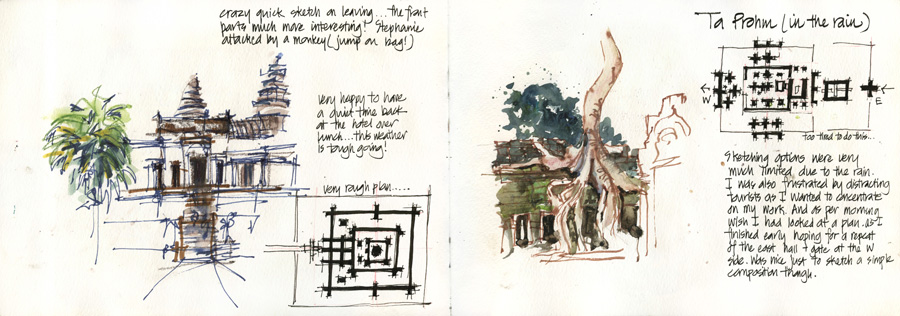 crazy quick sketch on leaving...the front
parts much more interesting! Stephanie
attacked by a monkey (jump on bag!)
very happy to have
a quiet time back
at the hotel over
lunch...this weather
is tough going!
very rough plan.....
Ta Prohm (in the rain)
W
E
too tired to do this...
Sketching options were very
much limited due to the rain.
I was also frustrated by distracting
tourists as I wanted to concentrate
on my work. And as per morning
wish I had looked at a plan. as I
finished early hoping for a repeat
of the east hall + gate at the W
side. Was nice just to sketch a simple
composition though.